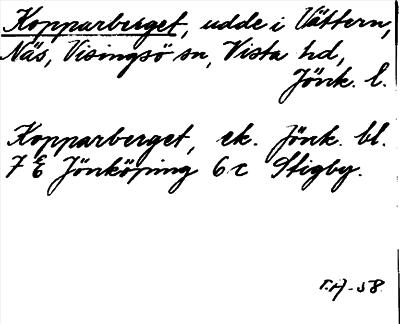 Kopparberget, udde i Vättern,
Näs, Visingsö sn, Vista hd,
Jönk. l.
Kopparberget, ek. Jönk. bl.
7 E Jönköping 6 c Stigby.
T.H-58